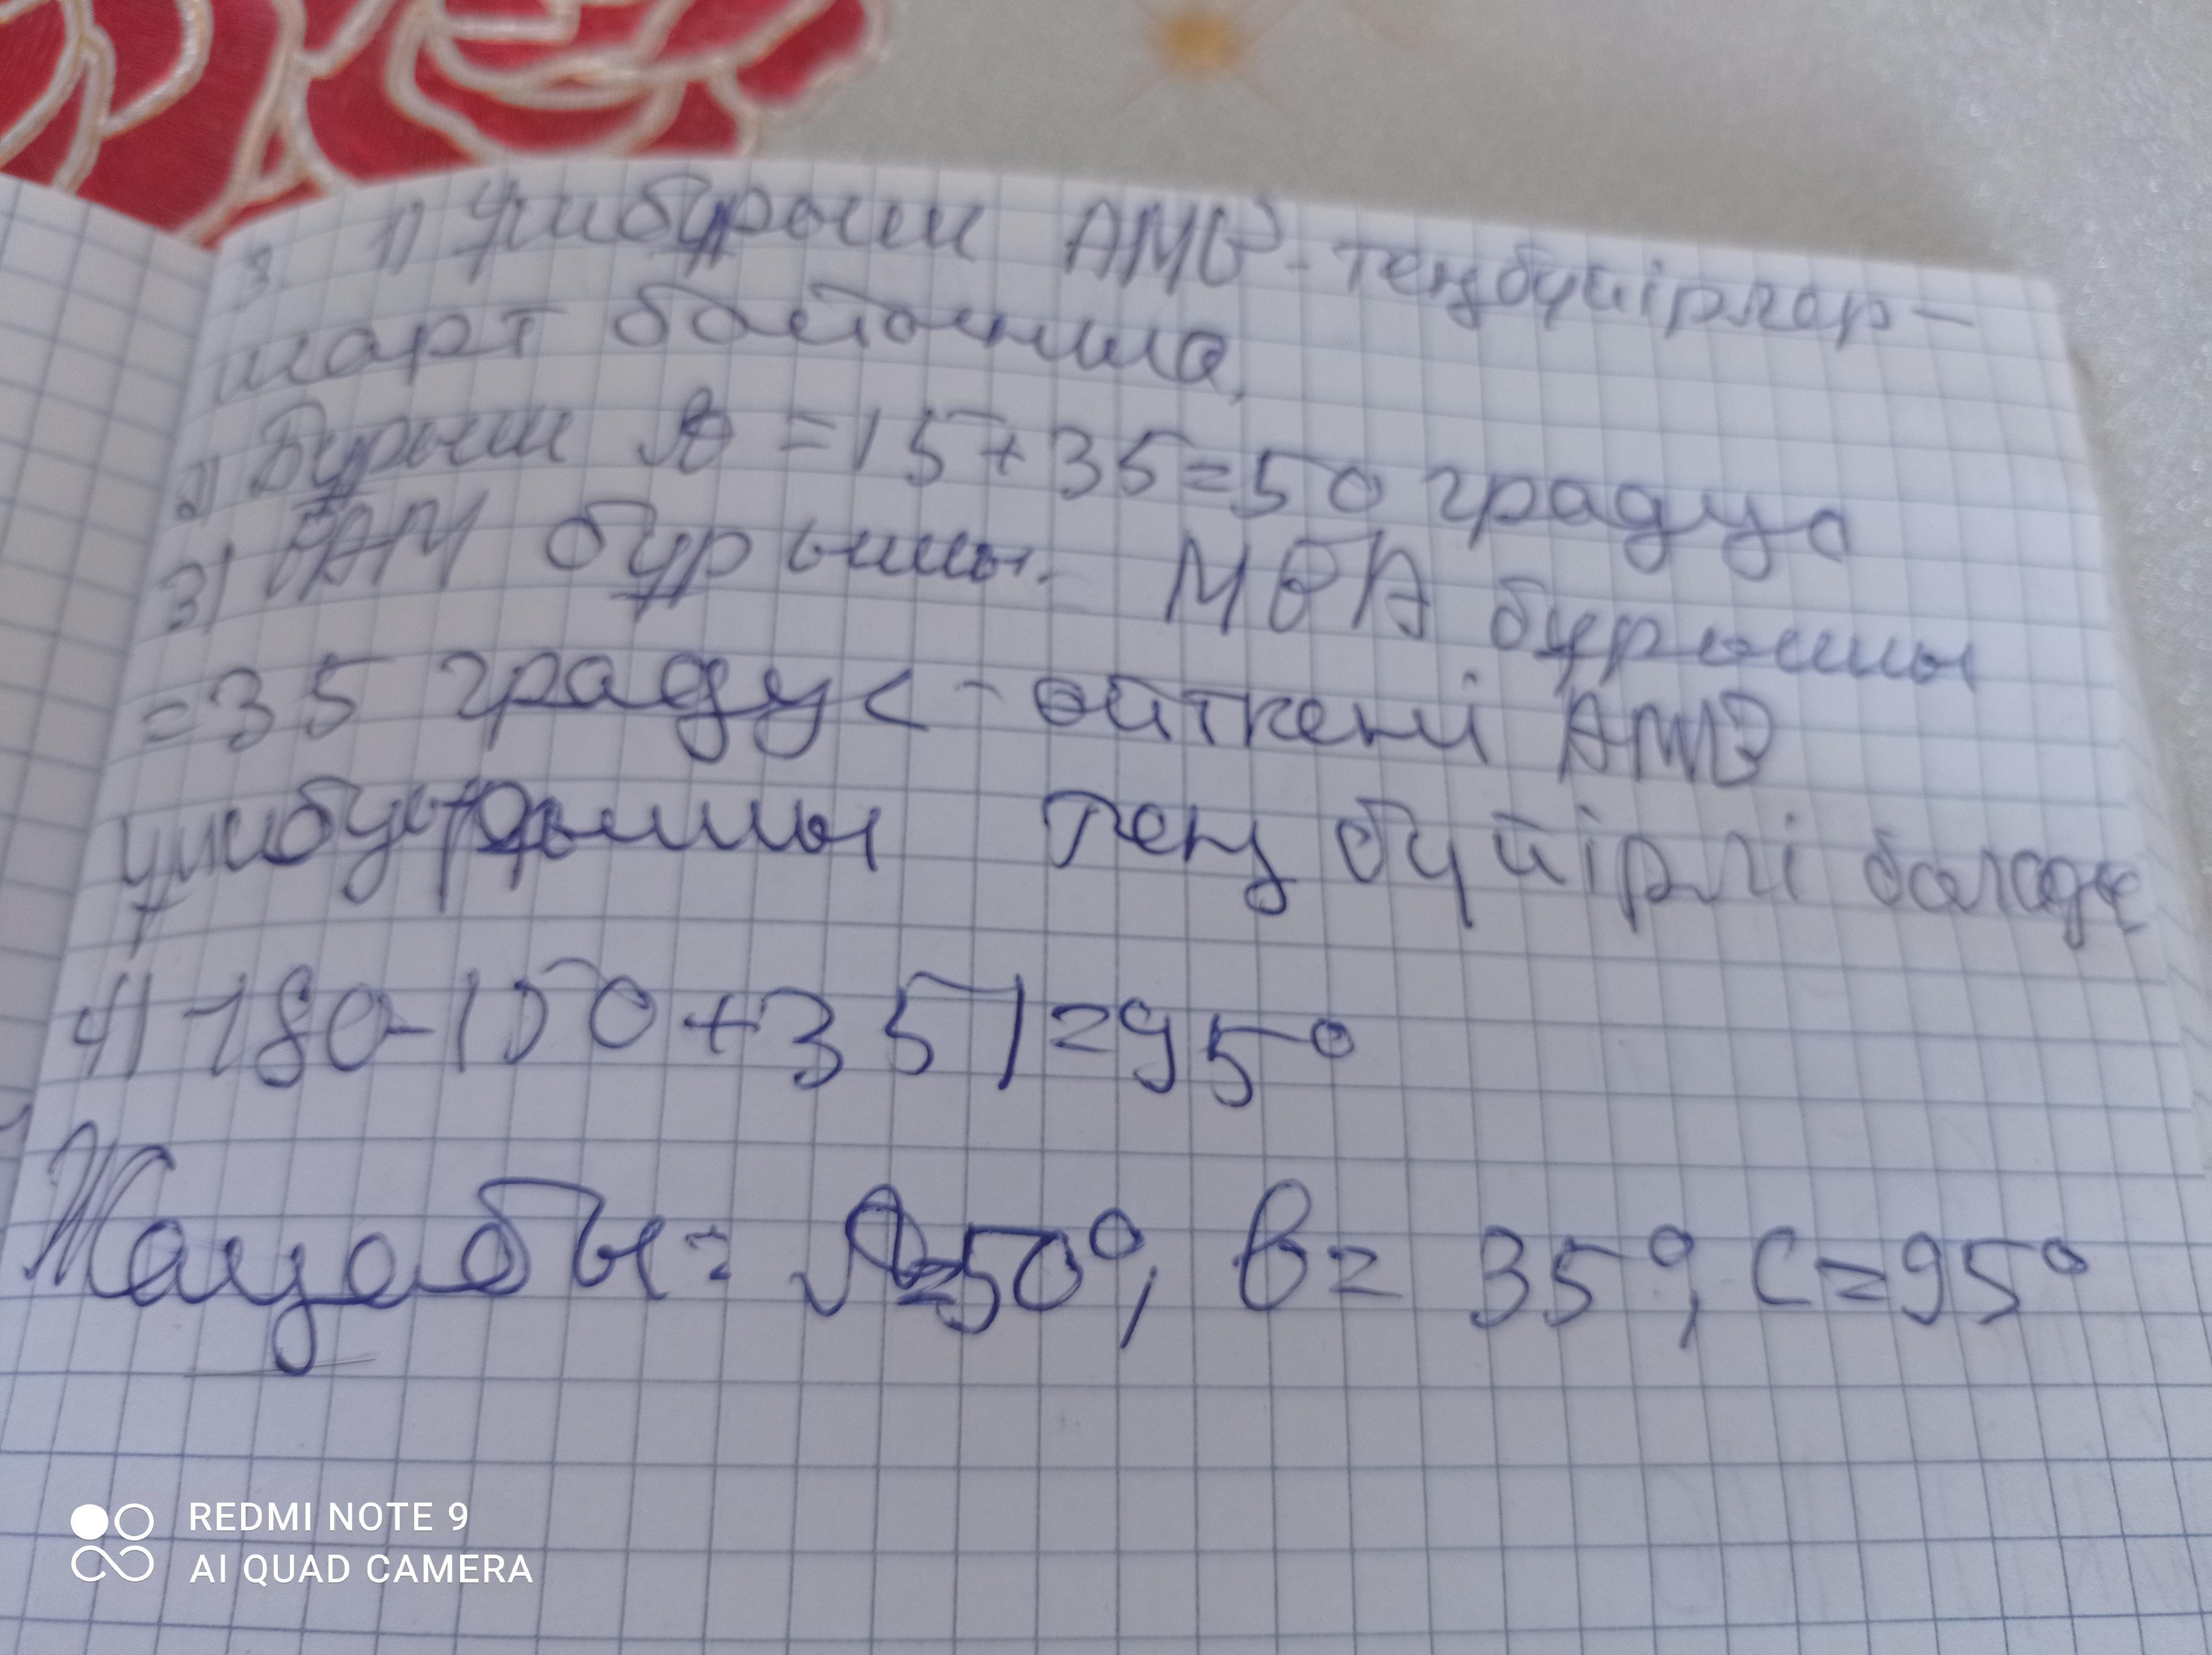 3. 1) Үшбұрыш АМВ - теңбүйірлер -
шарт бойынша.
2) Бұрыш А = 15 + 35 = 50 градус
3) ВАМ бұрышы = МВА бұрышы
= 35 градус - өйткені АМВ
үшбұрышы тең бүйірлі болады
4) 180 - (50 + 35) = 95°
Жауабы: А = 50°, В = 35°, С = 95°
REDMI NOTE 9
AI QUAD CAMERA